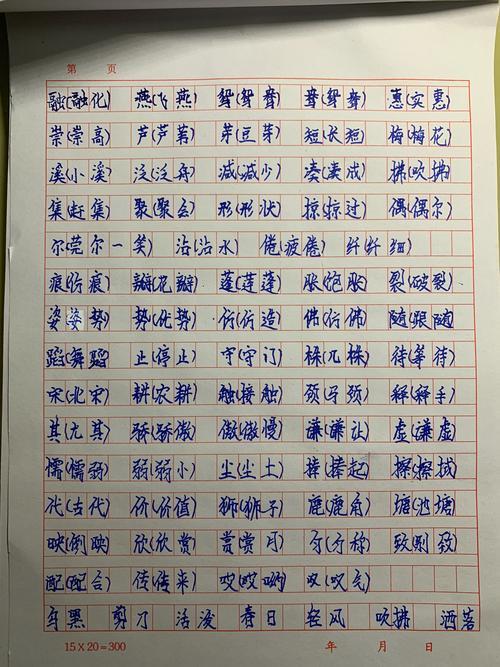 第 页
融(融化) 燕(飞燕) 鸳(鸳鸯) 鸯(鸳鸯) 惠(实惠)
崇(崇高) 芦(芦苇) 芽(豆芽) 短(长短) 梅(梅花)
溪(小溪) 泛(泛舟) 减(减少) 凑(凑成) 拂(吹拂)
集(赶集) 聚(聚会) 形(形状) 掠(掠过) 偶(偶尔)
尔(莞尔一笑) 沾(沾水) 倦(疲倦) 纤(纤细)
痕(伤痕) 瓣(花瓣) 蓬(莲蓬) 胀(饱胀) 裂(破裂)
姿(姿势) 势(优势) 仿(仿造) 佛(仿佛) 随(跟随)
蹈(舞蹈) 止(停止) 守(守门) 株(几株) 待(等待)
宋(北宋) 耕(农耕) 触(接触) 颈(马颈) 释(释手)
其(尤其) 骄(骄傲) 傲(傲慢) 谦(谦让) 虚(谦虚)
懦(懦弱) 弱(弱小) 尘(尘土) 捧(捧起) 擦(擦拭)
代(古代) 价(价值) 狮(狮子) 鹿(鹿角) 塘(池塘)
映(倒映) 欣(欣赏) 赏(赏月) 匀(匀称) 致(别致)
配(配合) 传(传来) 哎(哎哟) 叹(叹气)
乌黑 剪刀 活泼 春日 轻风 吹拂 洒落
15×20=300 年 月 日